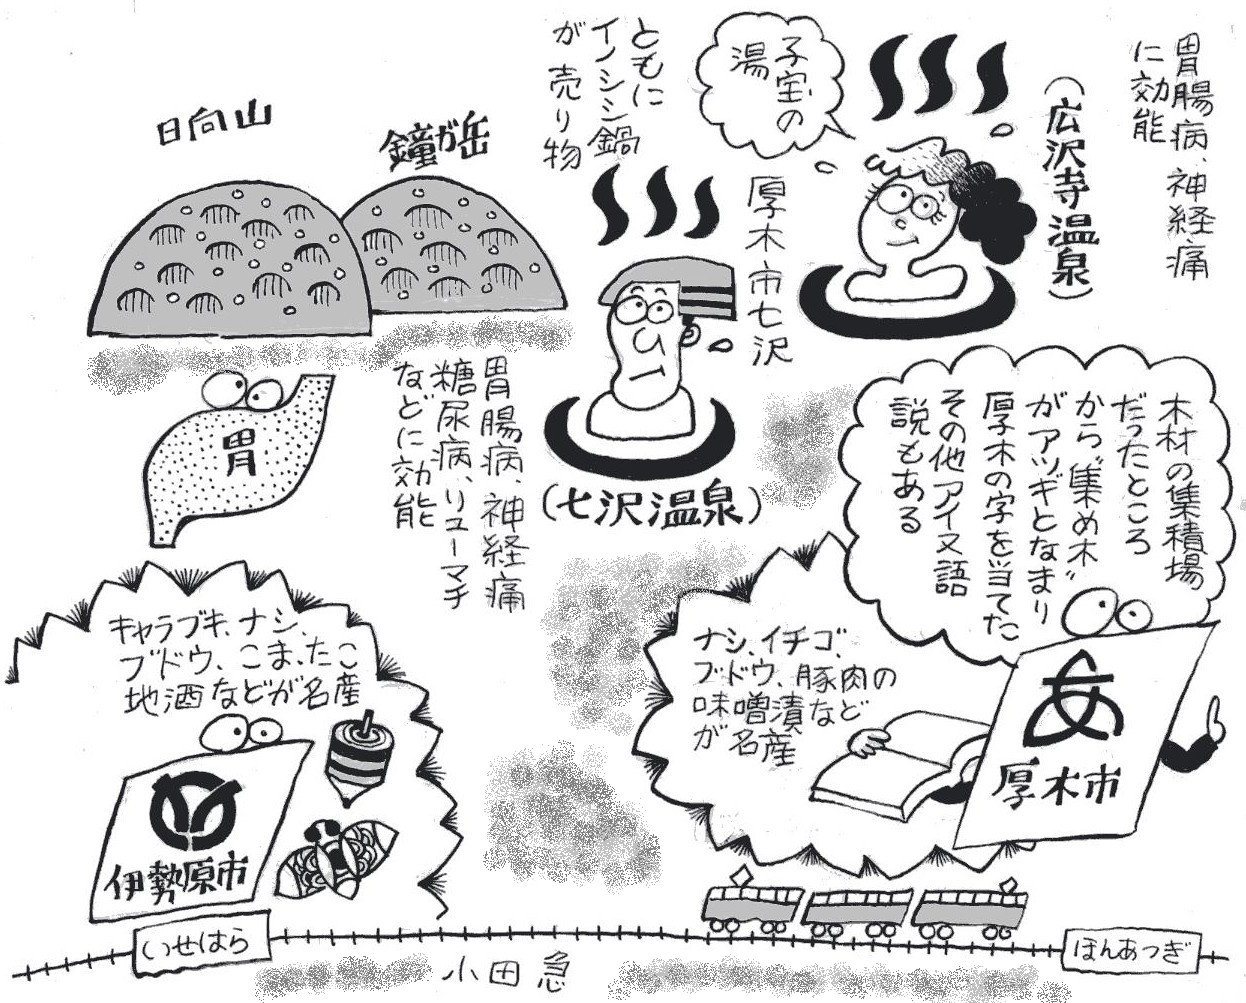 胃腸病、神経痛
に効能
(広沢寺温泉)
子宝の
湯
ともに
イノシシ鍋
が売り物
厚木市七沢
鐘が岳
日向山
胃
胃腸病、神経痛
糖尿病、リューマチ
などに効能
(七沢温泉)
木材の集積場
だったところ
から“集め木”
がアツギとなまり
厚木の字を当てた
その他アイヌ語
説もある
ナシ、イチゴ、
ブドウ、豚肉の
味噌漬など
が名産
厚木市
キャラブキ、ナシ、
ブドウ、こま、たこ
地酒などが名産
伊勢原市
いせはら
小田急
ほんあつぎ